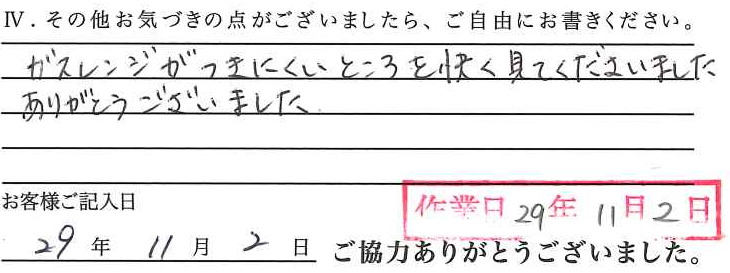 Ⅳ．その他お気づきの点がございましたら、ご自由にお書きください。
ガスレンジがつきにくいところを快く見てくださいました
ありがとうございました
お客様ご記入日
作業日 29年 11月 2日
29 年 11 月 2 日 ご協力ありがとうございました。